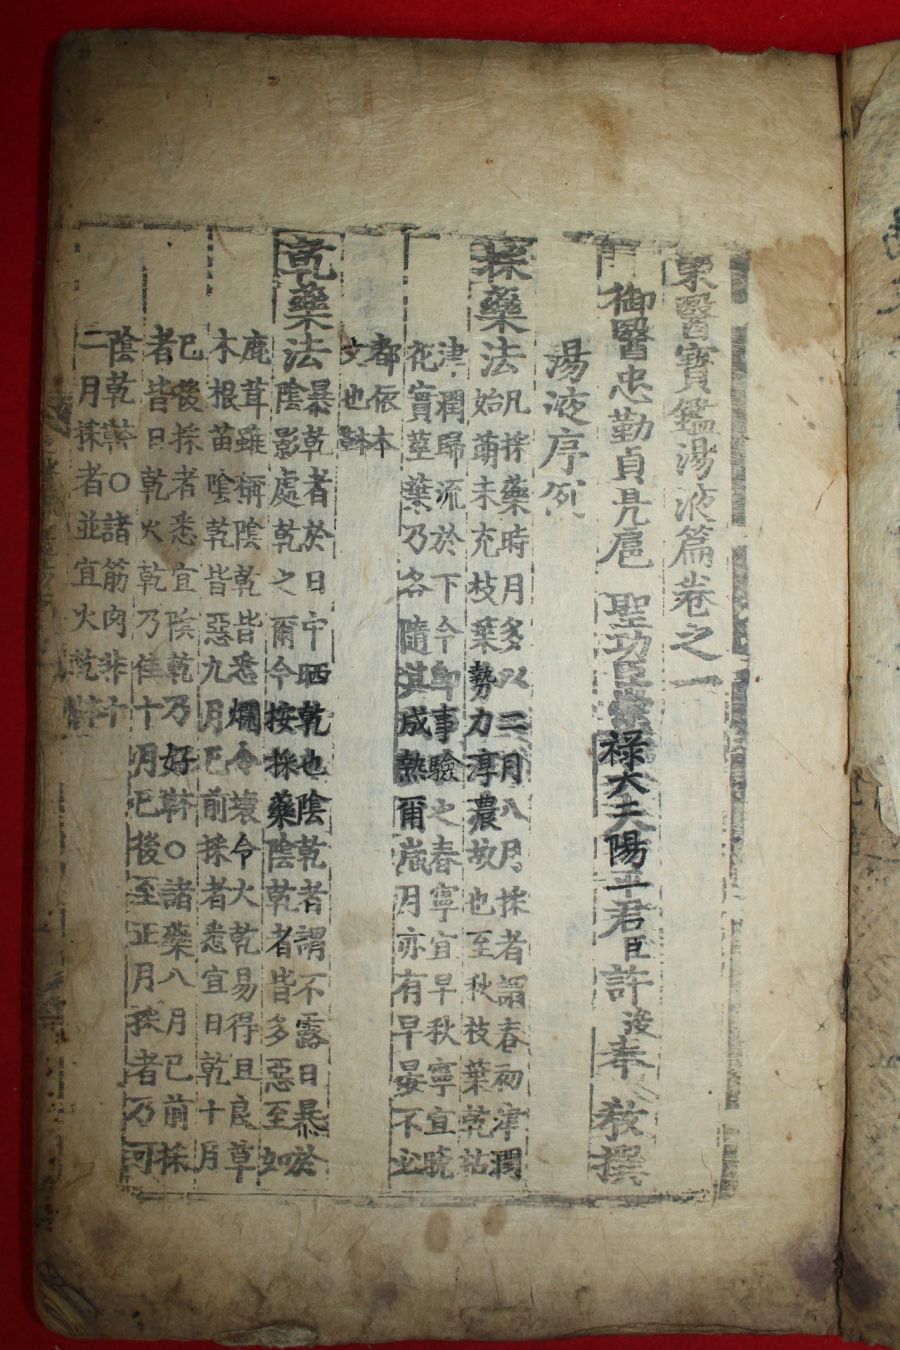 東醫寶鑑湯液篇卷之一
御醫忠勤貞亮扈 聖功臣崇祿大夫陽平君臣許浚奉 教撰
湯液序例
採藥法 凡採藥時月多以二月八月採者謂春初津潤
始萌未充枝葉勢力淳濃故也至秋枝葉乾枯
津潤歸流於下今卽事驗之春寧宜早秋寧宜晩
花實莖葉乃各隨其成熟爾歲月亦有早晏不必
都依本
文也 本草
乾藥法 暴乾者於日中晒乾也陰乾者謂不露日暴於
陰影處乾之爾今按採藥陰乾者皆多惡至如
鹿茸雖稱陰乾皆悉爛令壞今火乾易得且良草
木根苗陰乾皆惡九月已前採者悉宜日乾十月
已後採者悉宜陰乾乃好 本草○諸藥八月已前採
者皆日乾火乾乃佳十月已後至正月採者乃可
陰乾 本草○諸筋肉非十
二月採者並宜火乾 本草